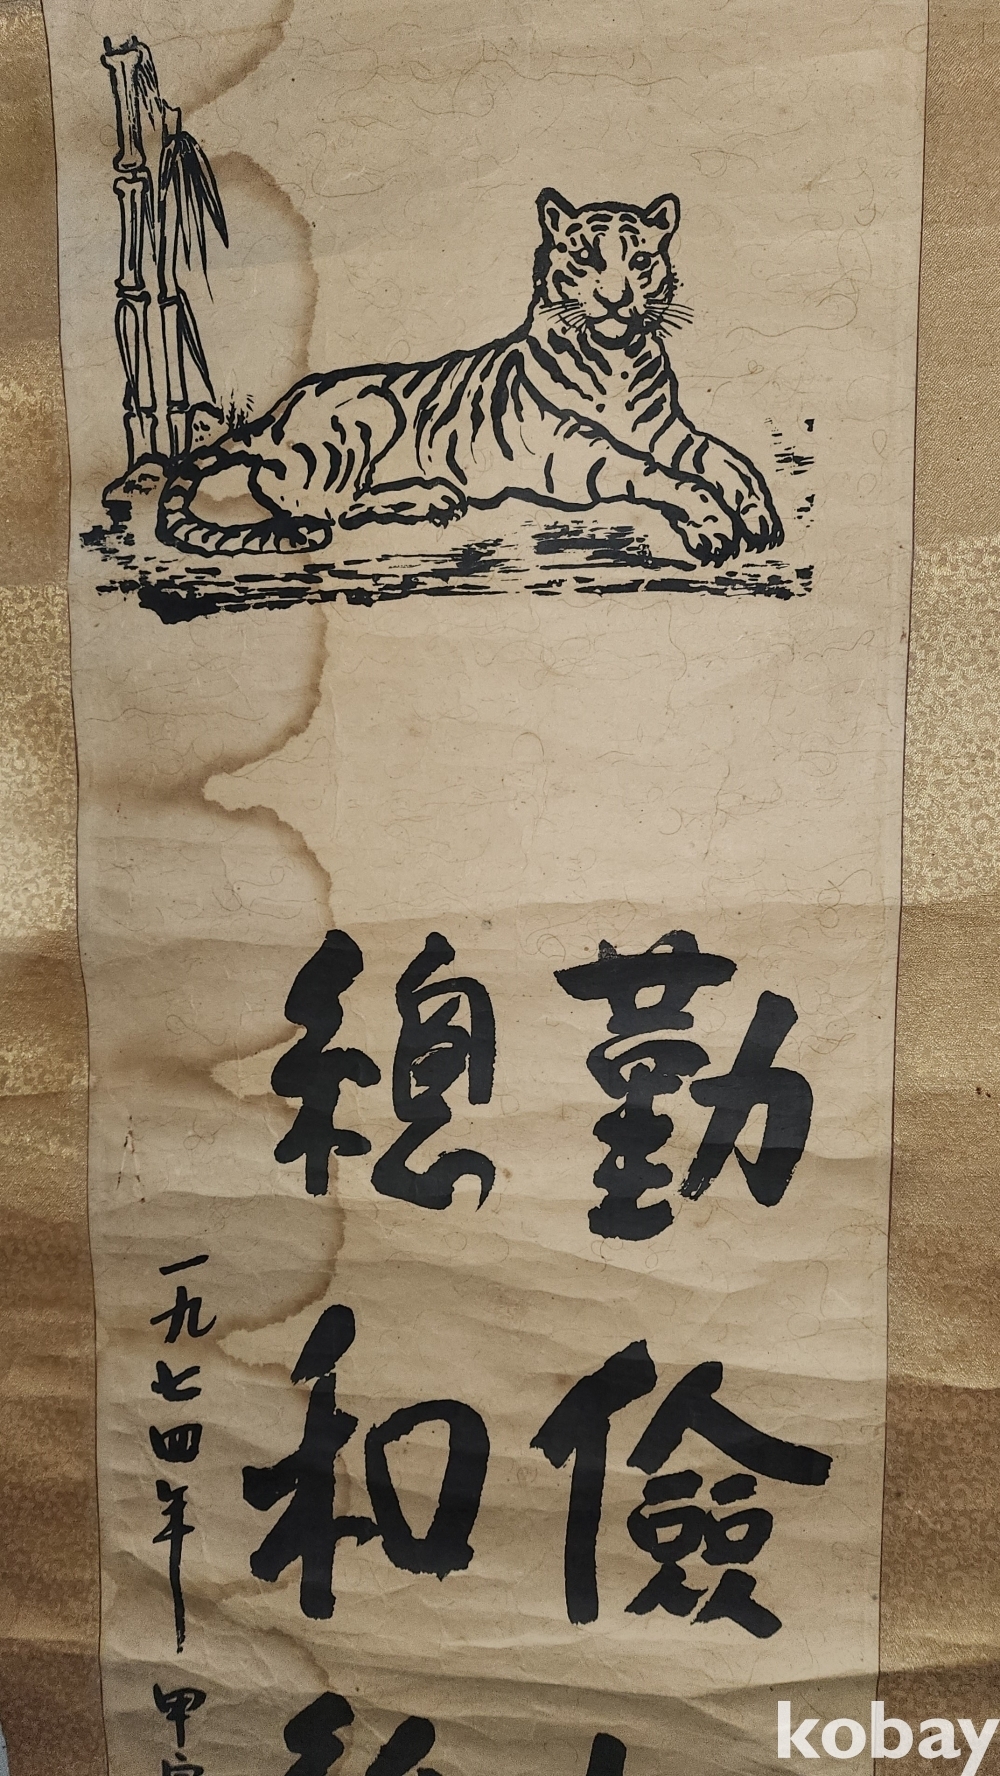 勤儉
總和
一九七四年 甲
kobay